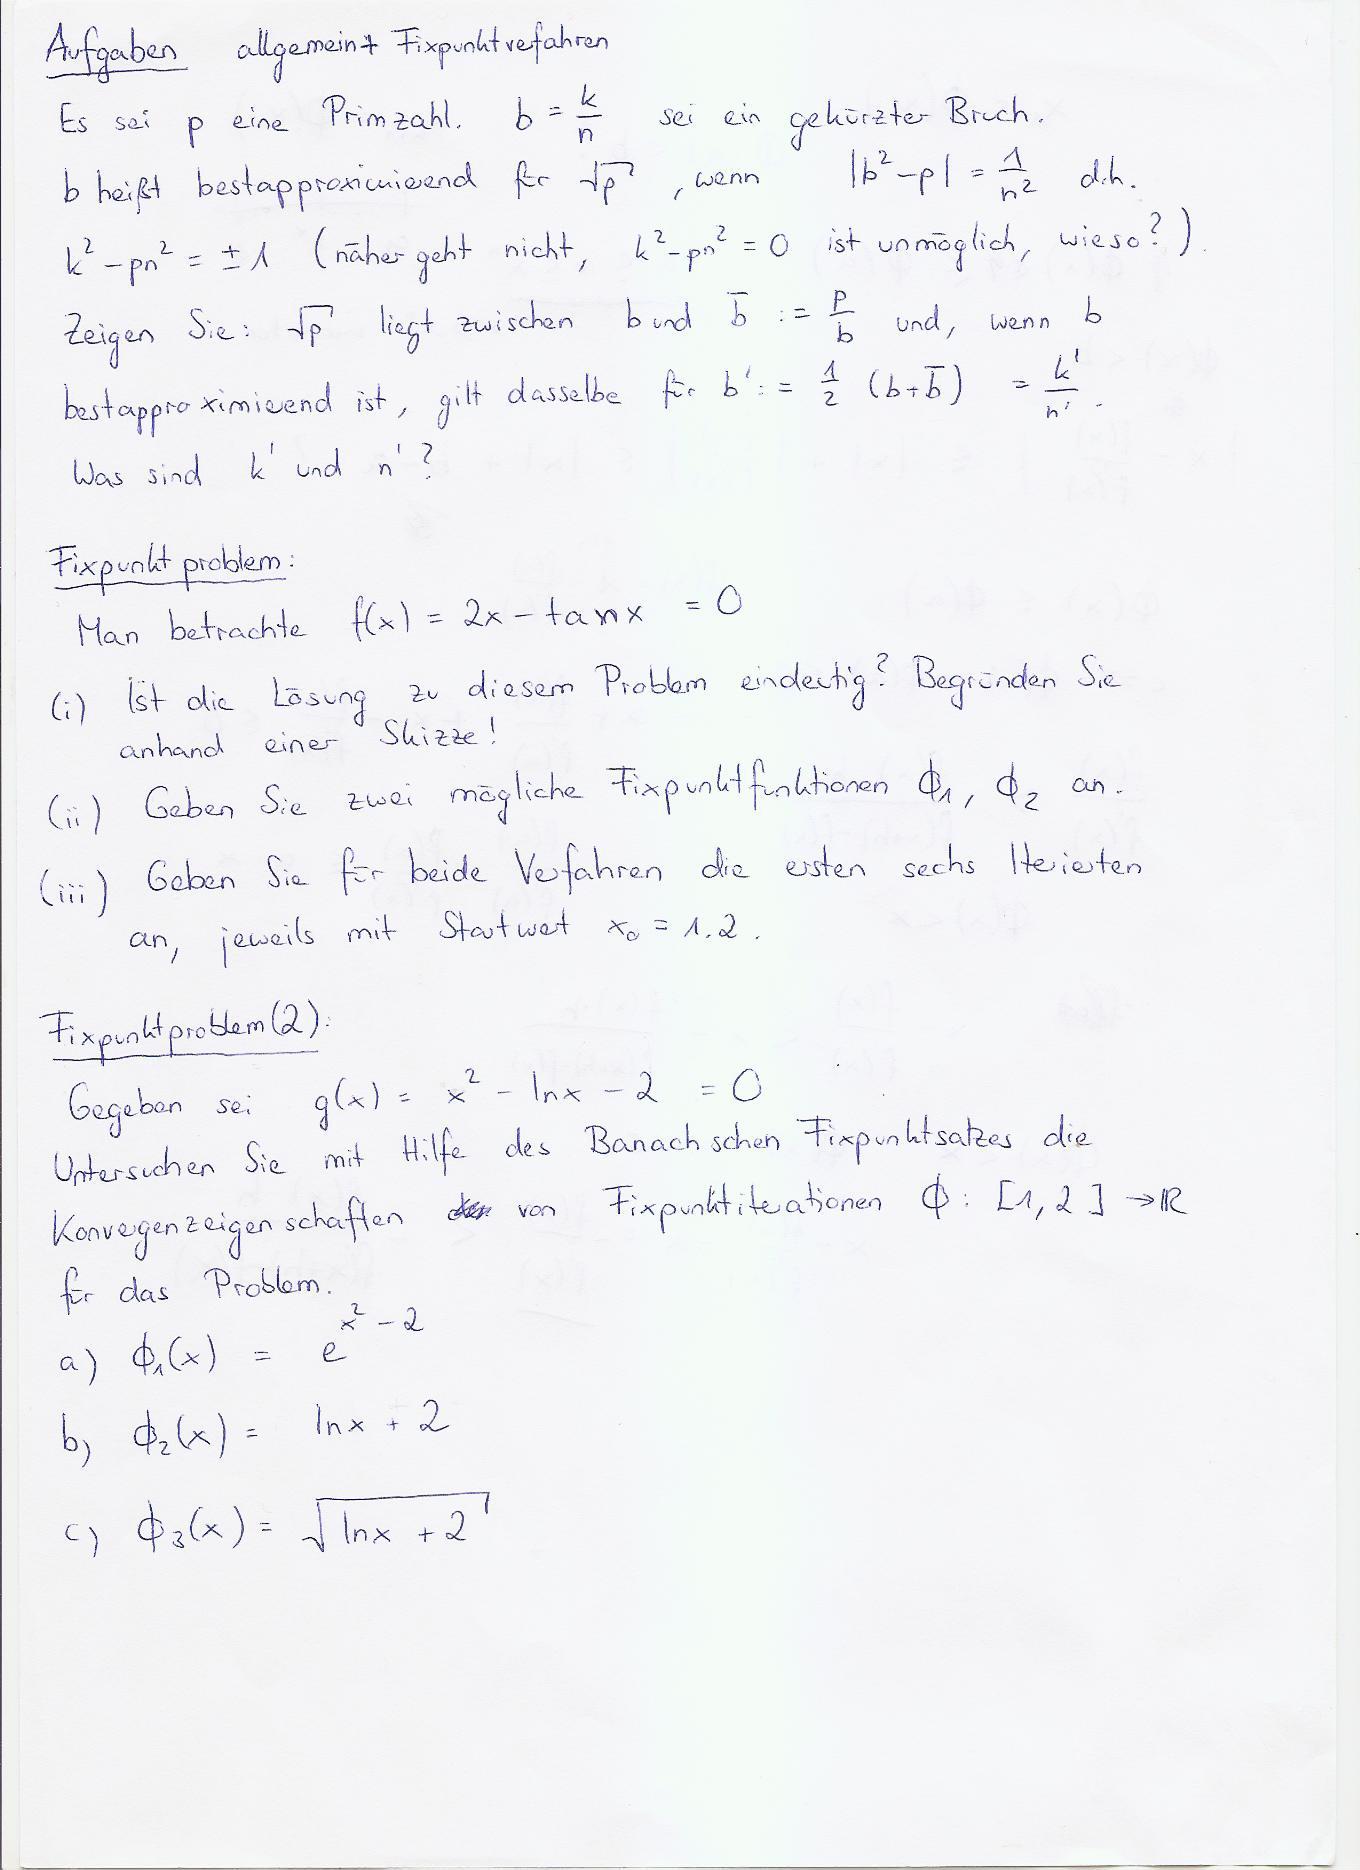 Aufgaben allgemein + Fixpunktverfahren
Es sei p eine Primzahl. b = k/n sei ein gekürzter Bruch.
b heißt bestapproximierend für √p, wenn |b² - p| = 1/n² d.h.
k² - pn² = ± 1 (näher geht nicht, k² - pn² = 0 ist unmöglich, wieso?).
Zeigen Sie: √p liegt zwischen b und b̄ := p/b und, wenn b
bestapproximierend ist, gilt dasselbe für b' := 1/2 (b + b̄) = k'/n'.
Was sind k' und n'?
Fixpunktproblem:
Man betrachte f(x) = 2x - tan x = 0
(i) Ist die Lösung zu diesem Problem eindeutig? Begründen Sie
anhand einer Skizze!
(ii) Geben Sie zwei mögliche Fixpunktfunktionen ϕ₁, ϕ₂ an.
(iii) Geben Sie für beide Verfahren die ersten sechs Iterierten
an, jeweils mit Startwert x₀ = 1.2.
Fixpunktproblem(2):
Gegeben sei g(x) = x² - ln x - 2 = 0
Untersuchen Sie mit Hilfe des Banachschen Fixpunktsatzes die
Konvergenzeigenschaften von Fixpunktiterationen ϕ: [1,2] → ℝ
für das Problem.
a) ϕ₁(x) = e^(x² - 2)
b) ϕ₂(x) = ln x + 2
c) ϕ₃(x) = √(ln x + 2)